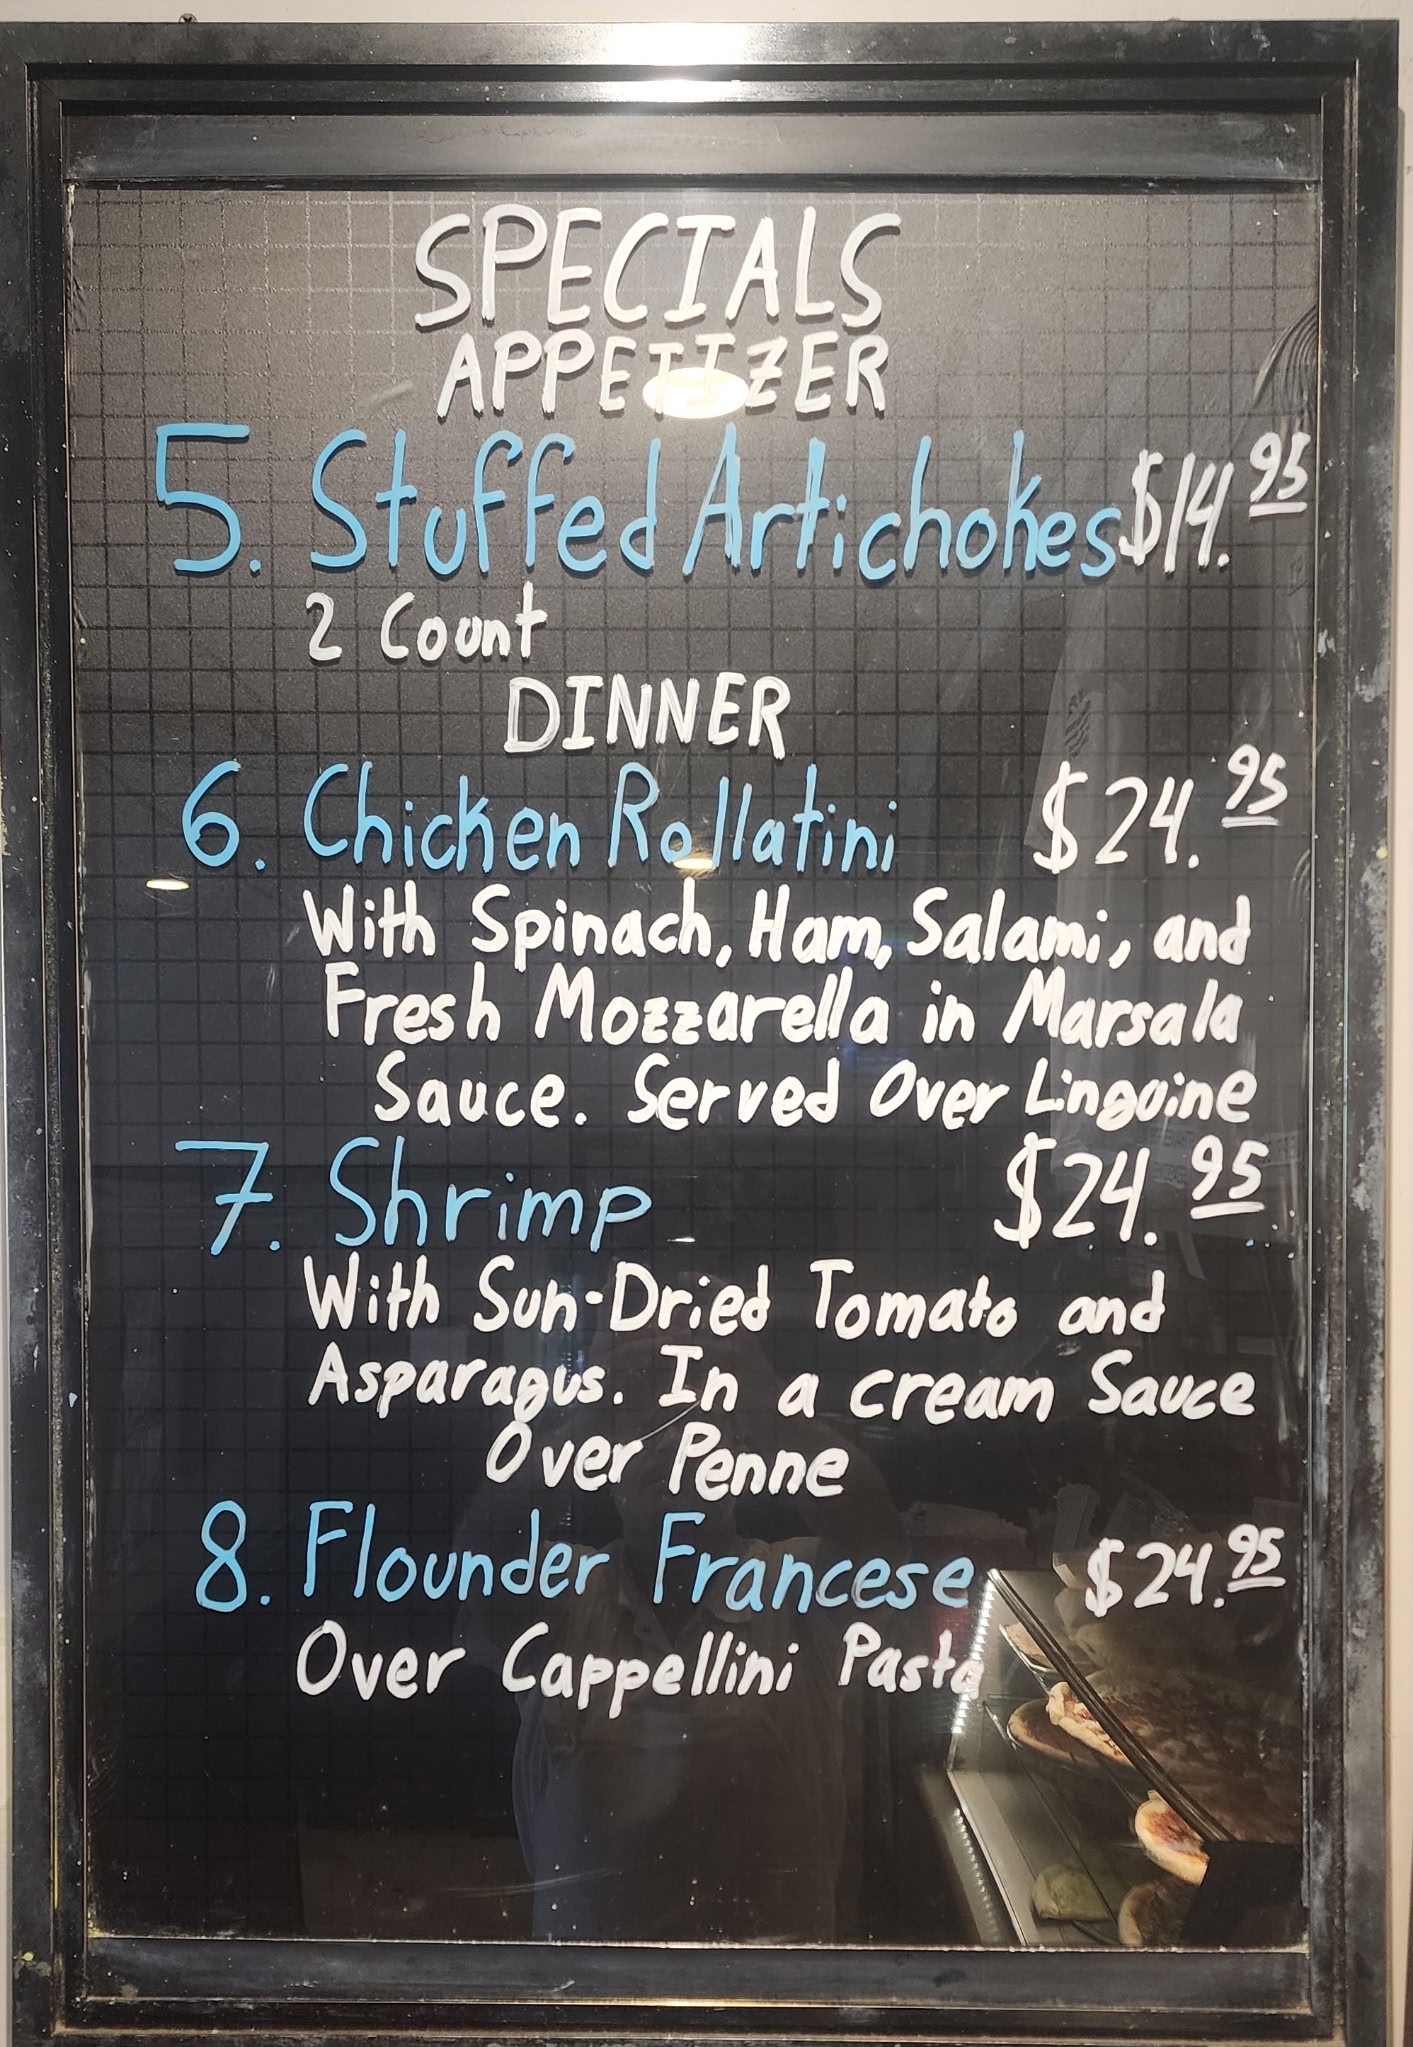 SPECIALS
APPETIZER
5. Stuffed Artichokes $14.95
2 Count
DINNER
6. Chicken Rollatini $24.95
With Spinach, Ham, Salami, and
Fresh Mozzarella in Marsala
Sauce. Served Over Linguine
7. Shrimp $24.95
With Sun-Dried Tomato and
Asparagus. In a cream Sauce
Over Penne
8. Flounder Francese $24.95
Over Cappellini Pasta